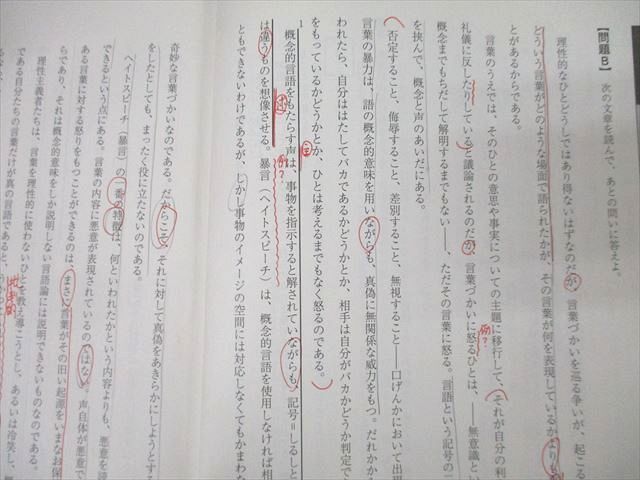 【問題B】 次の文章を読んで、あとの問いに答えよ。
理性的なひとどうしではあり得ないはずなのだが、言葉づかいを巡る争いが、起こる
どういう言葉がどのような場面で語られたかが、その言葉が何を表現しているかよりも
とがあるからである。
言葉のうえでは、そのひとの意思や事実についての主題に移行して、それが自分の利
礼儀に反したりしていると議論されるのだが、言葉づかいに怒るひとは、――無意識とい
概念までもちだして解明するまでもない――、ただその言葉に怒る。言語という記号の二
を挟んで、概念と声のあいだにある。
否定すること、侮辱すること、差別すること、無視すること――口げんかにおいて出現
言葉の暴力は、語の概念的意味を用いながらも、真偽に無関係な威力をもつ。だれかか
われたら、自分ははたしてバカであるかどうかとか、相手は自分がバカかどうか判定で
をもっているかどうかとか、ひとは考えるまでもなく怒るのである。
1
概念的言語をもたらす声は、事物を指示すると解されていながらも、記号＝しるしと
は違うものを想像させる。暴言（ヘイトスピーチ）は、概念的言語を使用しなければ相
ともできないわけであるが、しかし事物のイメージの空間には対応しなくてもかまわな
奇妙な言葉づかいなのである。だからこそ、それに対して真偽をあきらかにしようとする
をしたとしても、まったく役に立たないのである。
ヘイトスピーチ（暴言）の一番の特徴は、何といわれたかという内容よりも、悪意を読
できるという点にある。言葉の内容に悪意が表現されているのではない。声自体が悪意で
ある言葉に対する怒りをもつことができるのは、まさに言葉がその旧い起源をいまなお保
らであり、それは概念的意味をしか説明しない言語論には説明できないものなのである。
理性主義者たちは、言葉を理性的に使わないひとを教え導こうとし、あるいは冷笑し、
である自分たちの言葉だけが真の言語であると、
例？
例？